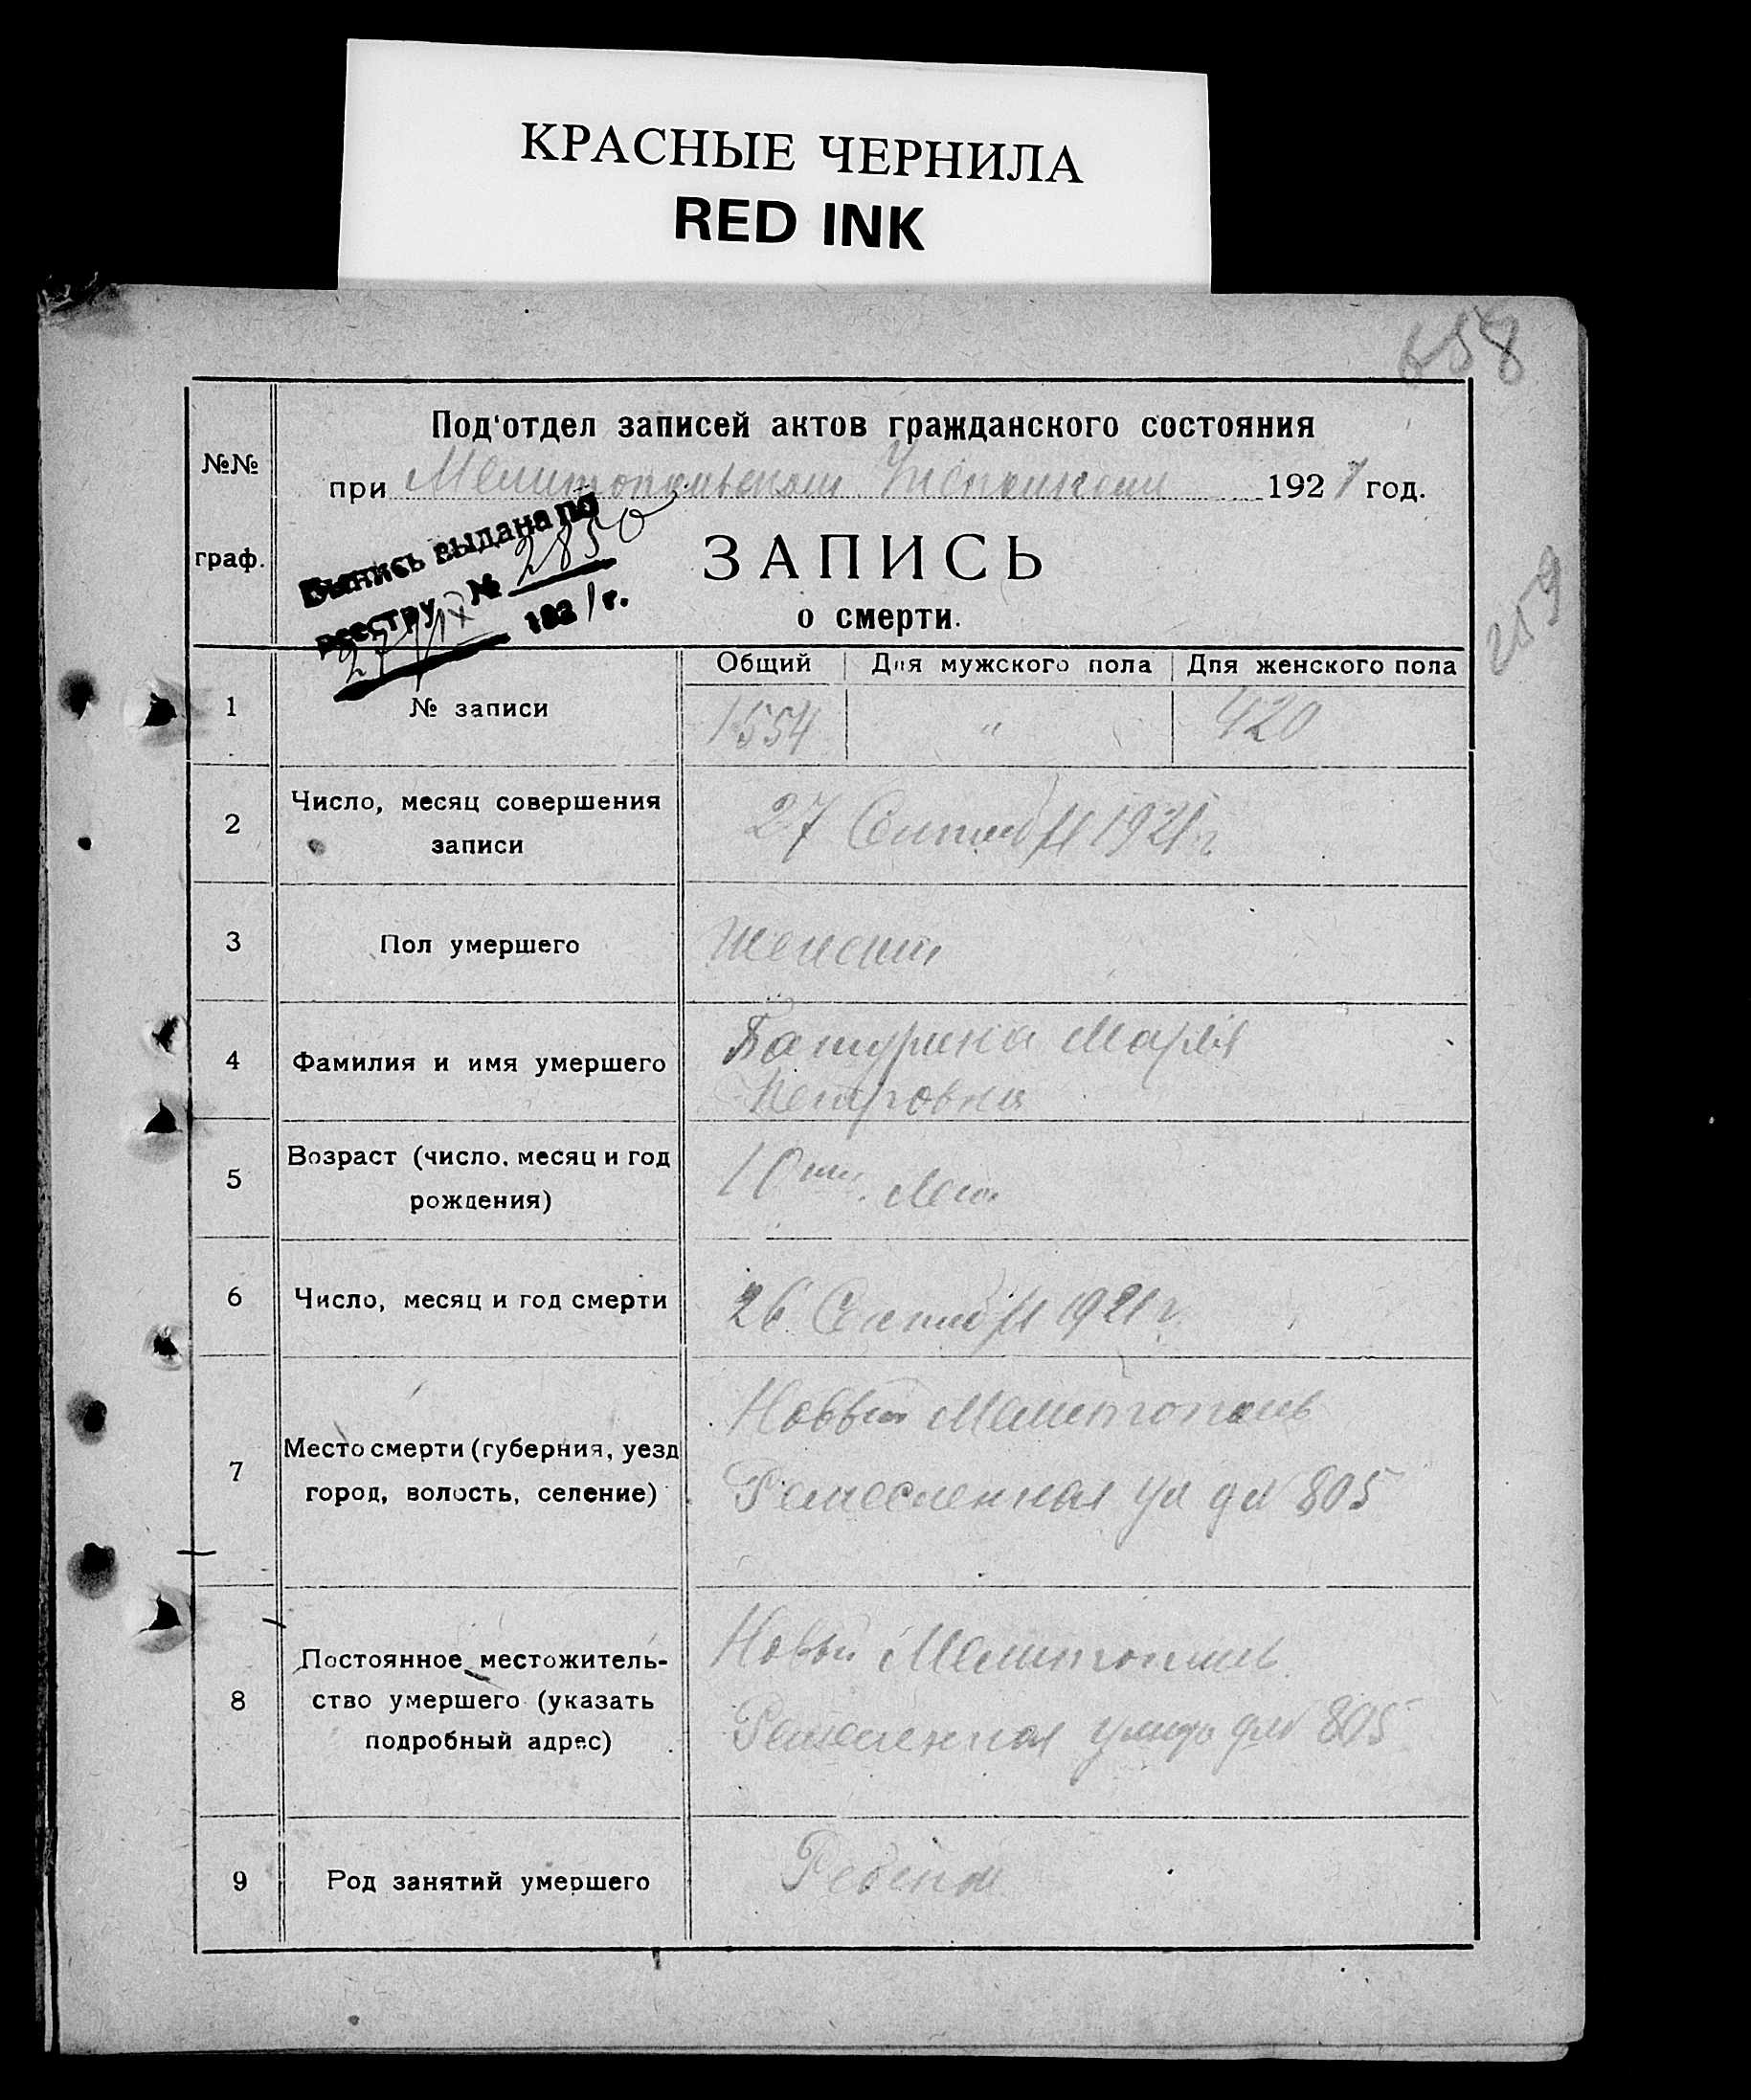 КРАСНЫЕ ЧЕРНИЛА
RED INK
658
Под'отдел записей актов гражданского состояния
№№
при Мелитопольском 1921 год.
граф.
Выпись выдана по
реестру № 2850
27/IX 1921 г.
ЗАПИСЬ
о смерти.
259
Общий Для мужского пола Для женского пола
1 № записи 1554 " 420
2 Число, месяц совершения
записи
27 Сентября 1921 г
3 Пол умершего Женский
4 Фамилия и имя умершего
Батурина Мария
Петровна
5 Возраст (число, месяц и год
рождения)
10
6 Число, месяц и год смерти 26 Сентября 1921 г.
7 Место смерти (губерния, уезд
город, волость, селение)
Новый Мелитополь
Ремесленная ул д№ 805
8 Постоянное местожитель-
ство умершего (указать
подробный адрес)
Новый Мелитополь
Ремесленная д№ 805
9 Род занятий умершего Ребенок